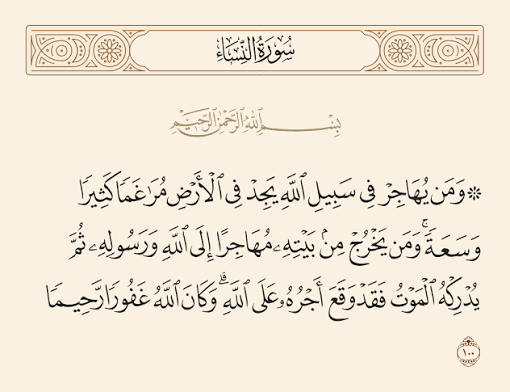 سُورَةُ النِّسَاءِ
بِسْمِ ٱللَّهِ ٱلرَّحْمَٰنِ ٱلرَّحِيمِ
۞ وَمَن يُهَاجِرْ فِي سَبِيلِ ٱللَّهِ يَجِدْ فِي ٱلْأَرْضِ مُرَٰغَمًا كَثِيرًا
وَسَعَةً ۚ وَمَن يَخْرُجْ مِنۢ بَيْتِهِۦ مُهَاجِرًا إِلَى ٱللَّهِ وَرَسُولِهِۦ ثُمَّ
يُدْرِكْهُ ٱلْمَوْتُ فَقَدْ وَقَعَ أَجْرُهُۥ عَلَى ٱللَّهِ ۗ وَكَانَ ٱللَّهُ غَفُورًا رَّحِيمًا
١٠٠